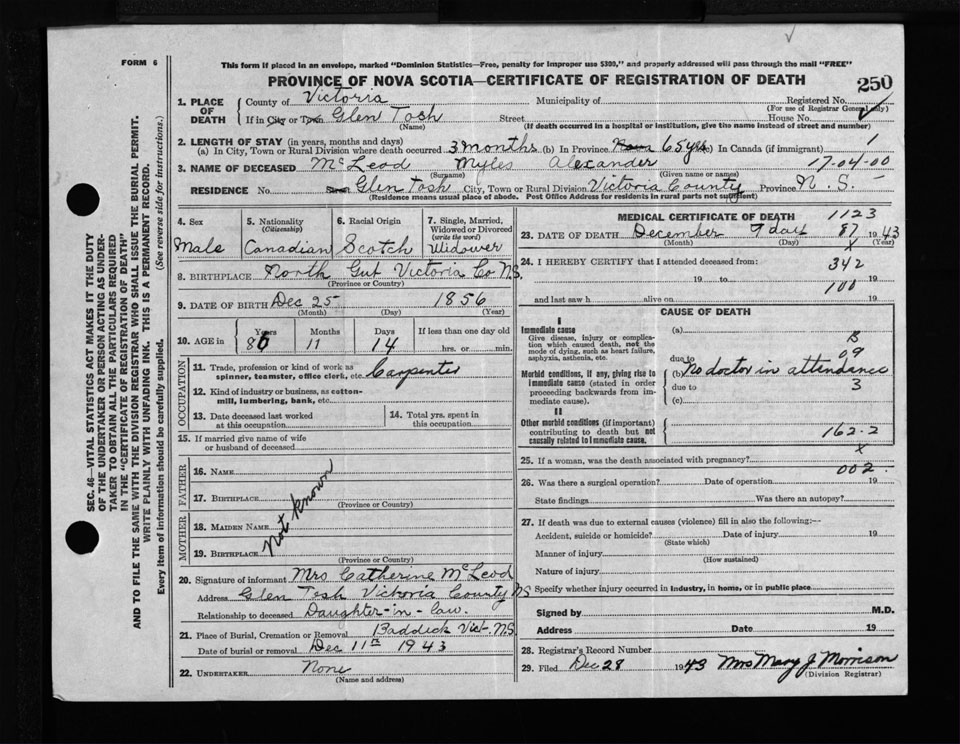 FORM 6
This form if placed in an envelope, marked "Dominion Statistics—Free, penalty for improper use $300," and properly addressed will pass through the mail "FREE"
PROVINCE OF NOVA SCOTIA—CERTIFICATE OF REGISTRATION OF DEATH
250
1. PLACE OF DEATH
County of Victoria Municipality of Registered No.
(For use of Registrar General only)
If in City or Town Glen Tosh Street House No.
(Name) (If death occurred in a hospital or institution, give the name instead of street and number)
2. LENGTH OF STAY (in years, months and days)
(a) In City, Town or Rural Division where death occurred 3 months (b) In Province 65 yrs (c) In Canada (if immigrant) 1
3. NAME OF DECEASED McLeod Myles Alexander 17-04-00
(Surname) (Given name or names)
RESIDENCE No. Glen Tosh City, Town or Rural Division Victoria County Province N.S.
(Residence means usual place of abode. Post Office Address for residents in rural parts not sufficient)
4. Sex
Male
5. Nationality
(Citizenship)
Canadian
6. Racial Origin
Scotch
7. Single, Married, Widowed or Divorced
(write the word)
Widower
8. BIRTHPLACE North Gut Victoria Co N.S.
(Province or Country)
9. DATE OF BIRTH Dec 25 1856
(Month) (Day) (Year)
10. AGE in
Years Months Days If less than one day old
86 11 14 hrs. or min.
OCCUPATION
11. Trade, profession or kind of work as spinner, teamster, office clerk, etc. Carpenter
12. Kind of industry or business, as cotton-mill, lumbering, bank, etc.
13. Date deceased last worked at this occupation
14. Total yrs. spent in this occupation
15. If married give name of wife or husband of deceased
FATHER
16. NAME
17. BIRTHPLACE
(Province or Country)
MOTHER
18. MAIDEN NAME
19. BIRTHPLACE
(Province or Country)
Not Known
20. Signature of informant Mrs Catherine McLeod
Address Glen Tosh Victoria County NS
Relationship to deceased Daughter-in-law.
21. Place of Burial, Cremation or Removal Baddeck Vict. N.S.
Date of burial or removal Dec 11th 1943
22. UNDERTAKER None
(Name and address)
MEDICAL CERTIFICATE OF DEATH 1123
23. DATE OF DEATH December 9 day 87 1943
(Month) (Day) (Year)
X
24. I HEREBY CERTIFY that I attended deceased from:
342
19 to 19
100
and last saw h alive on 19
CAUSE OF DEATH
I
Immediate cause
Give disease, injury or complication which caused death, not the mode of dying, such as heart failure, asphyxia, asthenia, etc.
(a)
B
09
due to
Morbid conditions, if any, giving rise to immediate cause (stated in order proceeding backwards from immediate cause).
(b) No doctor in attendance
due to 3
(c)
II
Other morbid conditions (if important) contributing to death but not causally related to immediate cause.
162.2
X
25. If a woman, was the death associated with pregnancy?
002-
26. Was there a surgical operation? Date of operation 19
State findings Was there an autopsy?
27. If death was due to external causes (violence) fill in also the following:—
Accident, suicide or homicide? Date of injury 19
(State which)
Manner of injury
(How sustained)
Nature of injury
Specify whether injury occurred in industry, in home, or in public place
Signed by M.D.
Address Date 19
28. Registrar's Record Number
29. Filed Dec 28 1943 Mrs Mary J Morrison
(Division Registrar)
SEC. 46—VITAL STATISTICS ACT MAKES IT THE DUTY OF THE UNDERTAKER OR PERSON ACTING AS UNDERTAKER TO OBTAIN ALL THE PARTICULARS REQUIRED IN THE "CERTIFICATE OF REGISTRATION OF DEATH"
AND TO FILE THE SAME WITH THE DIVISION REGISTRAR WHO SHALL ISSUE THE BURIAL PERMIT.
WRITE PLAINLY WITH UNFADING INK. THIS IS A PERMANENT RECORD.
Every item of information should be carefully supplied. (See reverse side for instructions.)